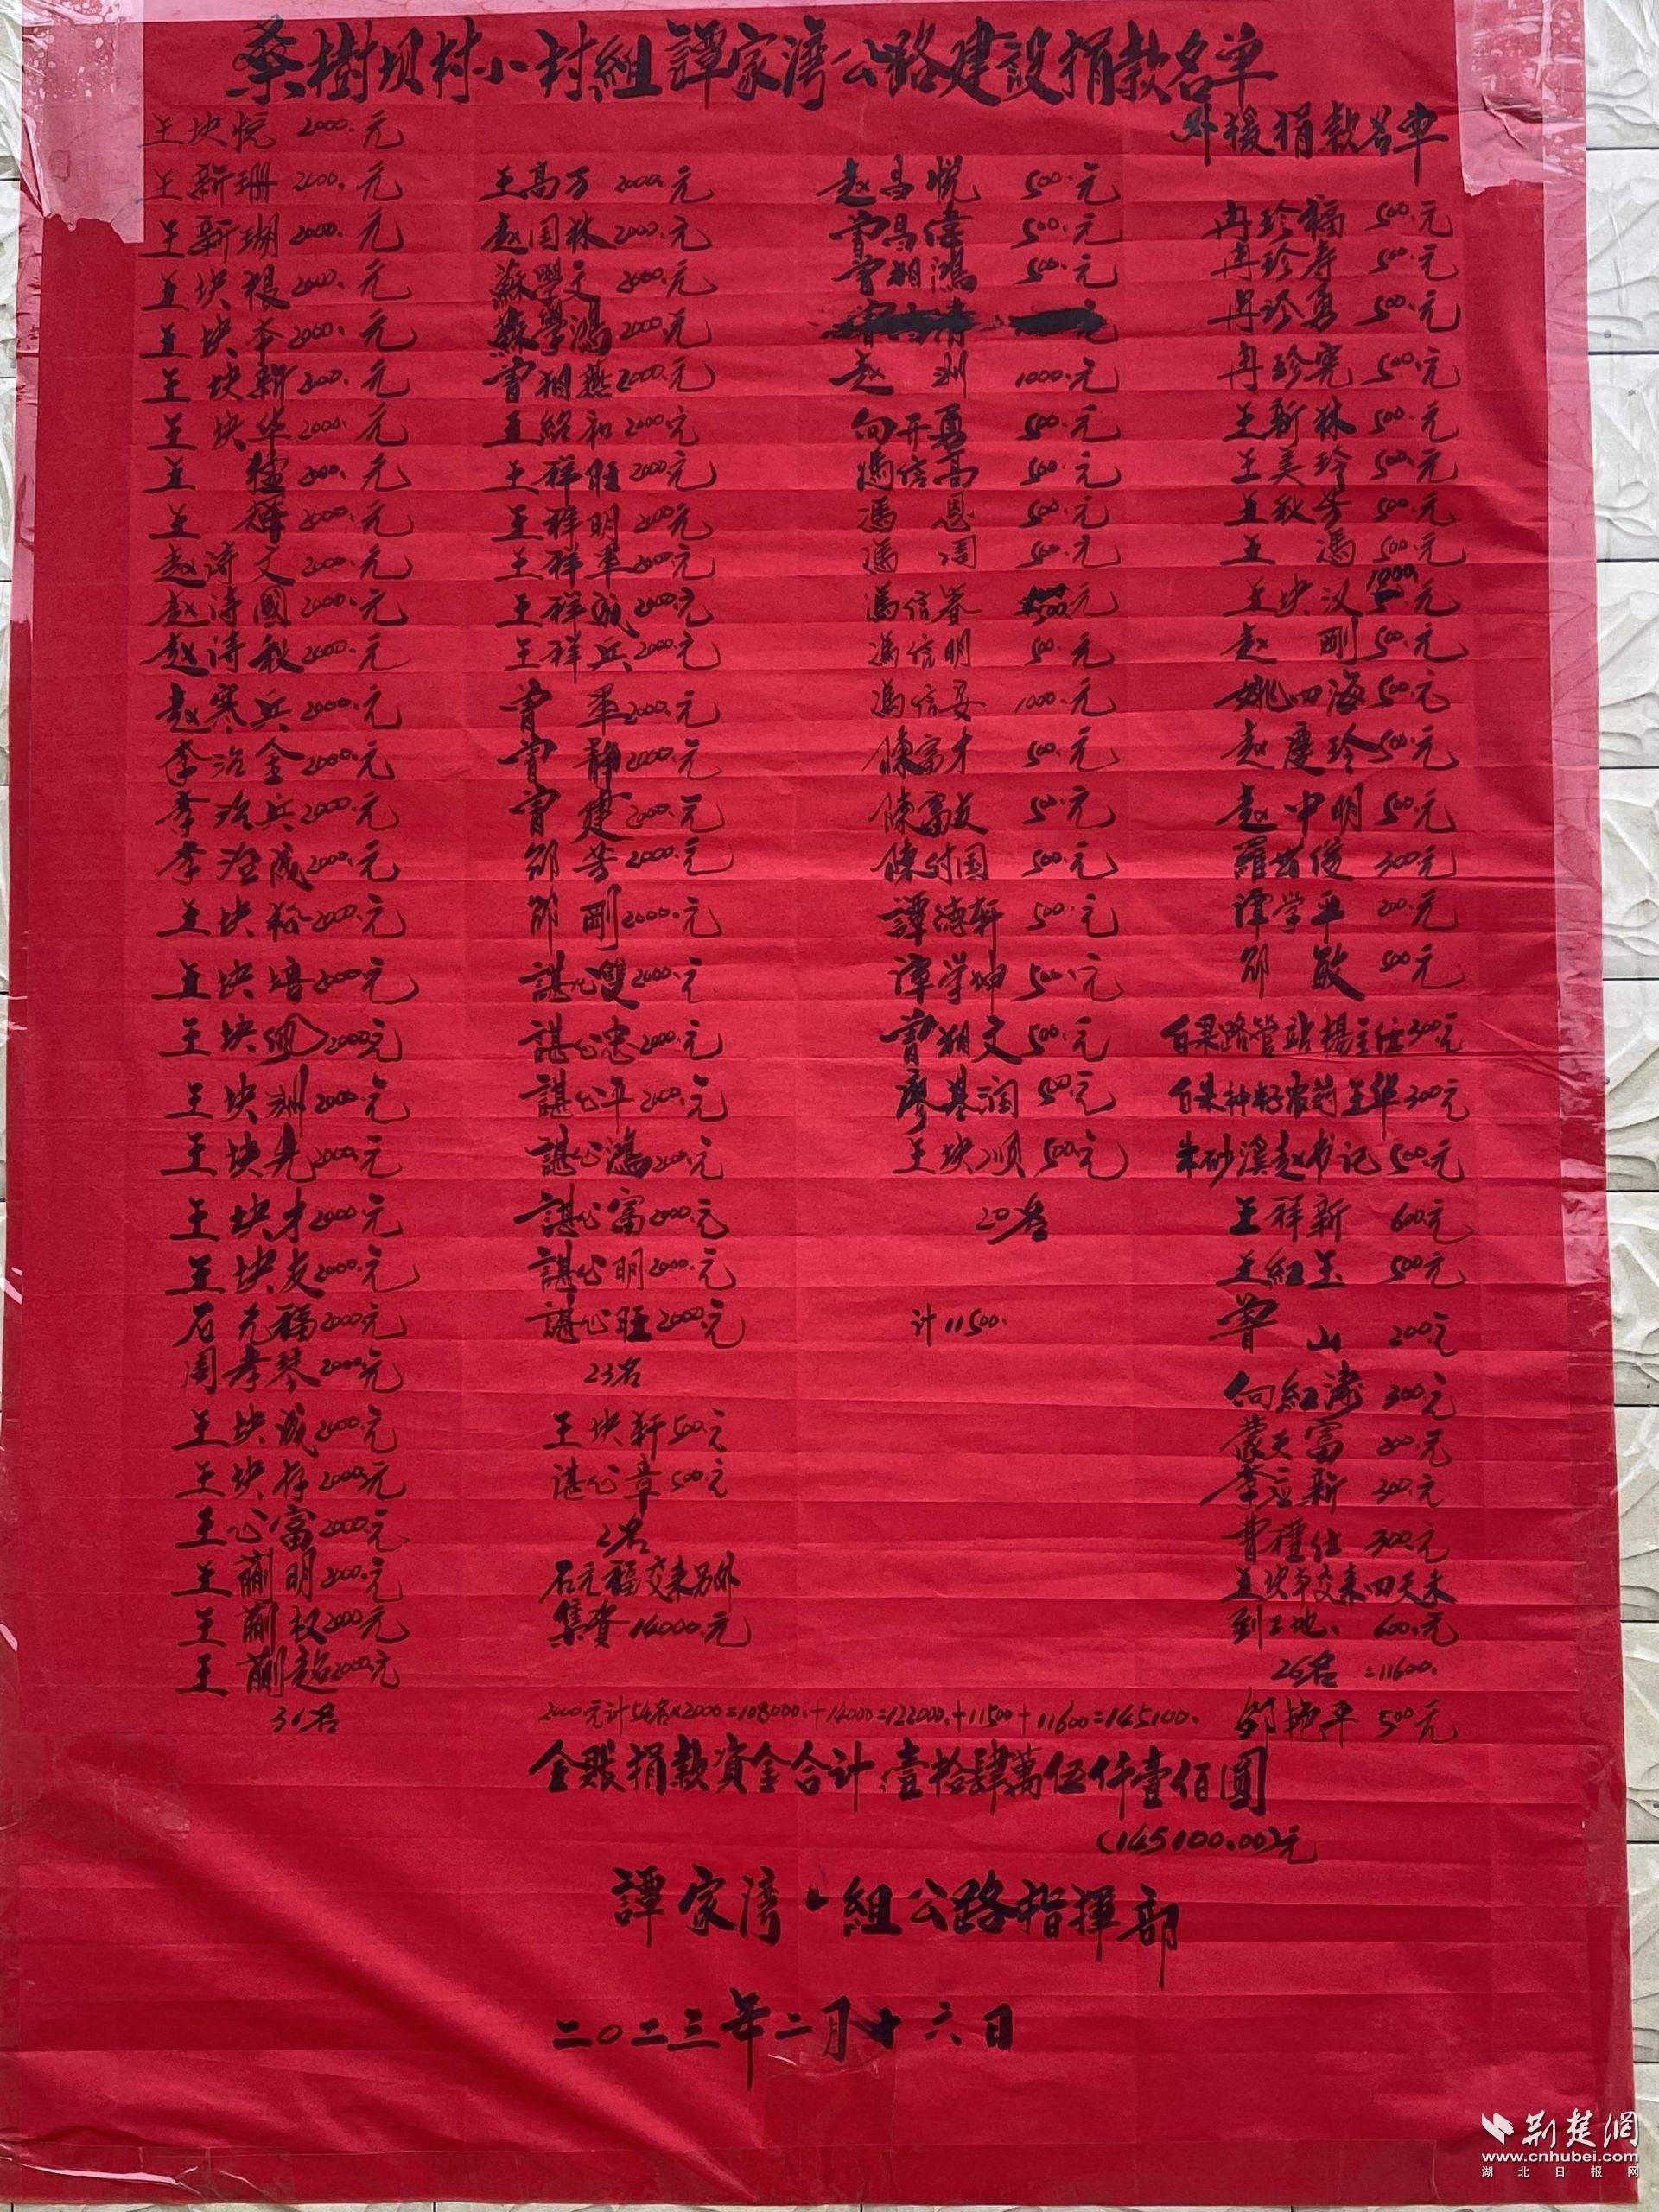 蔡樹坝村小村組譚家湾公路建設捐款名单
外援捐款名单
王块悦 2000.元
王新珊 2000.元
王新瑚 2000.元
王块根 2000.元
王块本 2000.元
王块新 2000.元
王块华 2000.元
王 2000.元
王 2000.元
赵诗文 2000.元
赵诗國 2000.元
赵诗秋 2000.元
赵寒兵 2000.元
李治金 2000.元
李治兵 2000.元
李治成 2000.元
王块松 2000.元
王块培 2000.元
王块 2000元
王块洲 2000.元
王块先 2000.元
王块才 2000.元
王块友 2000.元
石元福 2000元
周孝琴 2000.元
王块成 2000.元
王块存 2000.元
王心富 2000.元
王蒯明 2000.元
王蒯权 2000元
王蒯超 2000.元
31名
王高万 2000.元
赵国林 2000.元
蘇學文 2000.元
蘇學鴻 2000元
曾祥燕 2000.元
王紹和 2000元
王祥旺 2000.元
王祥明 2000元
王祥軍 2000.元
王祥成 2000.元
王祥兵 2000.元
曾軍 2000.元
曾静 2000.元
曾建 2000.元
邹芳 2000.元
邹剛 2000.元
諶心雙 2000.元
諶心忠 2000.元
諶心平 2000.元
諶心鴻 2000.元
諶心富 2000.元
諶心明 2000.元
諶心旺 2000.元
23名
王块轩 500.元
谌心章 500.元
2名
石元福交来另外
集資14000.元
赵昌悦 500.元
曾昌偉 500.元
曾祥鴻 500.元
赵洲 1000.元
向开勇 500.元
馮信高 500.元
馮恩 500.元
馮周 500.元
馮信春 500元
馮信明 500.元
馮信安 1000.元
陳富才 500.元
陳富友 500.元
陳时国 500.元
譚德轩 500.元
谭学坤 500.元
曾祥文 500.元
廖基润 500.元
王块顺 500.元
20名
计11500.
冉珍福 500.元
冉珍寿 500.元
冉珍勇 500.元
冉珍宪 500.元
王新林 500.元
王美玲 500.元
王秋芳 500.元
王馮 500.元
王块汉 1000.元
赵剛 500.元
姚四海 500.元
赵慶玲 500.元
赵中明 500.元
羅昔俊 300元
谭学平 200.元
邹敏 500元
白果路管站楊主任300元
白果种籽农药王华300元
朱砂溪赵书记 500.元
王祥新 600元
王紅玉 500元
曾山 200元
向紅濤 300元
蒙天富 200.元
李应新 300.元
曹禮仕 300元
王块本交来四天未
到工地. 600.元
26名 =11600.
邹艳平 500元
2000元计54名×2000=108000.+14000=122000.+11500+11600=145100.
全账捐款資金合计:壹拾肆萬伍仟壹佰圓
(145100.00)元
譚家湾小組公路指揮部
二〇二三年二月十六日
荆楚網
www.cnhubei.com
湖北日报网